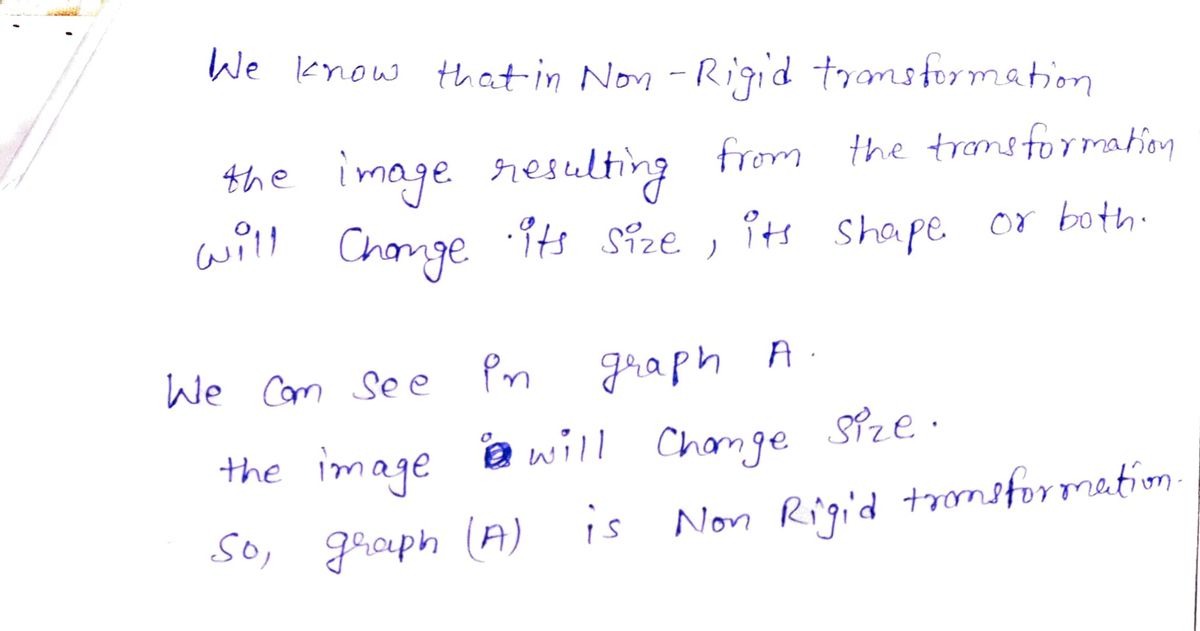 We know that in Non-Rigid transformation
the image resulting from the transformation
will Change its size, its shape or both.
We Can See in graph A.
the image will Change size.
So, graph (A) is Non Rigid transformation.